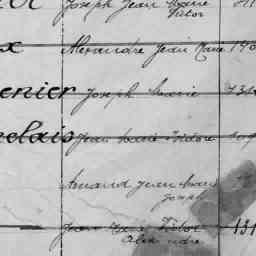 Joseph Jean Marie
Victor
x Alexandre Jean Marie 190
enier Joseph Marie 131
elais Jean Marie Isidore
Amand Jean Marie
Joseph
Jean Marie Victor 131
Alexandre